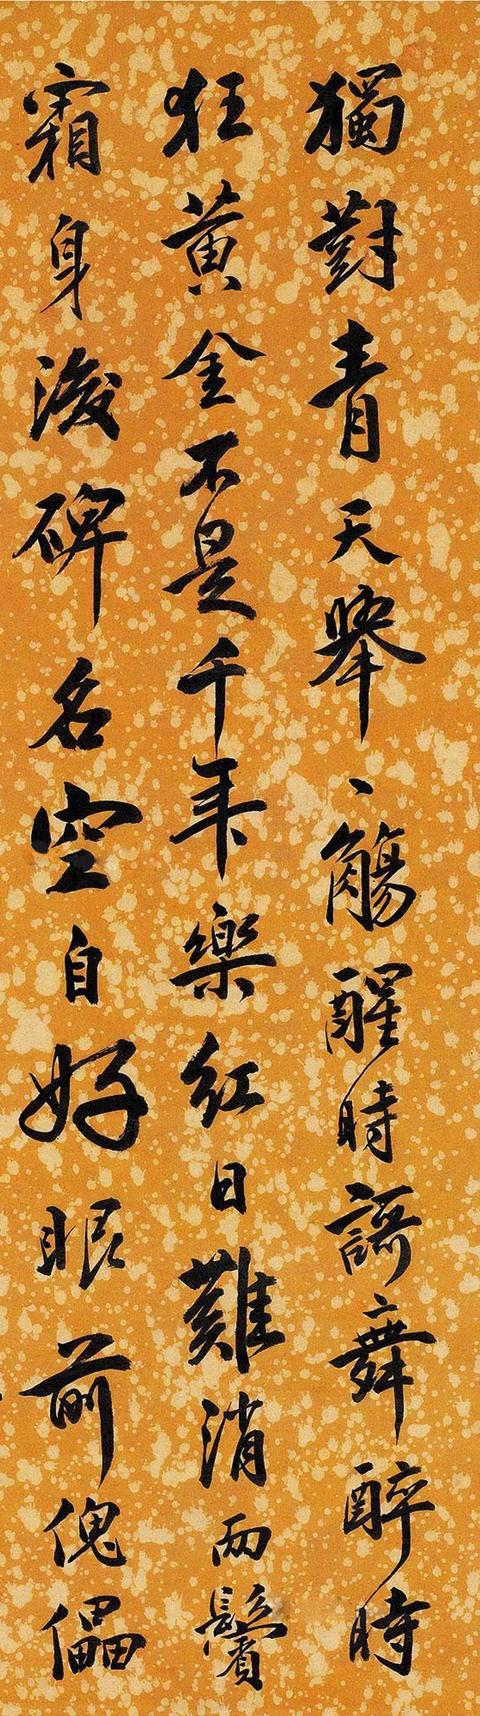 獨對青天舉一觴醒時謌舞醉時
狂黃金不是千年樂紅日難消兩鬢
霜身後碑名空自好眼前傀儡